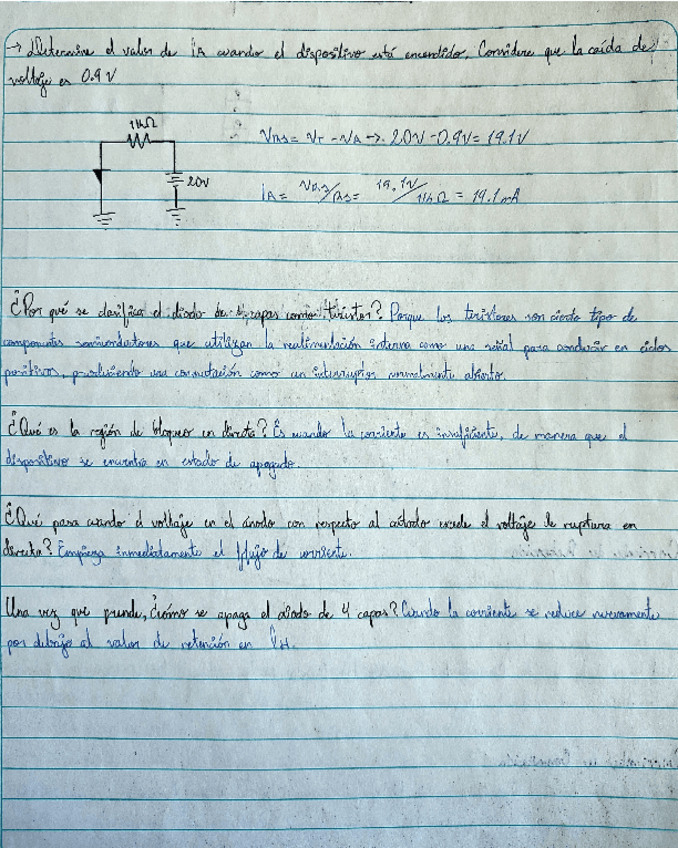 → Determine el valor de IA cuando el dispositivo está encendido. Considere que la caída de
voltaje es 0.9 V
1kΩ
20V
VRS = VT - VA → 20V - 0.9V = 19.1V
IA = VRS/RS = 19.1V/1kΩ = 19.1mA
¿Por qué se clasifica el diodo de 4 capas como tiristor? Porque los tiristores son cierto tipo de
componentes semiconductores que utilizan la realimentación interna como una señal para conducir en ciclos
positivos, produciendo una conmutación como un interruptor normalmente abierto.
¿Qué es la región de bloqueo en directa? Es cuando la corriente es insuficiente, de manera que el
dispositivo se encuentra en estado de apagado.
¿Qué pasa cuando el voltaje en el ánodo con respecto al cátodo excede el voltaje de ruptura en
directa? Empieza inmediatamente el flujo de corriente.
Una vez que prende, ¿cómo se apaga el diodo de 4 capas? Cuando la corriente se reduce nuevamente
por debajo al valor de retención en IH.